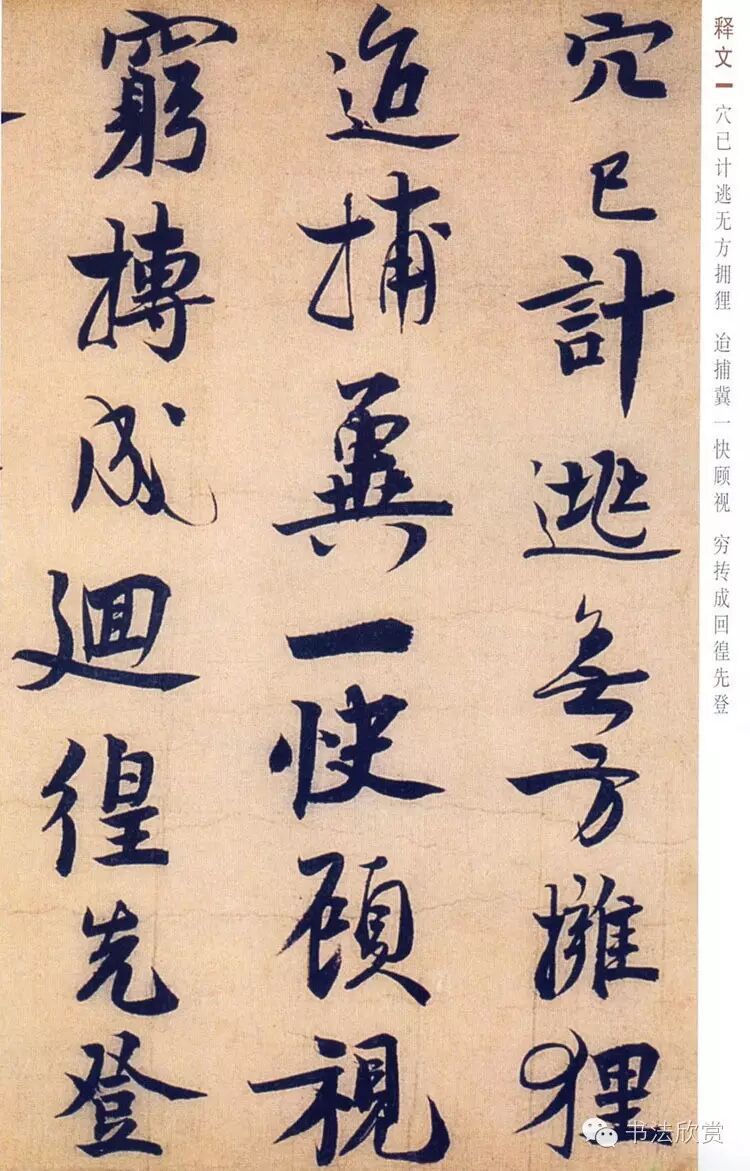 穴已計逃無方擁狸
迨捕冀一快顧視
窮摶成廻徨先登
释文
穴已计逃无方拥狸 迨捕冀一快顾视 穷抟成回徨先登
书法欣赏